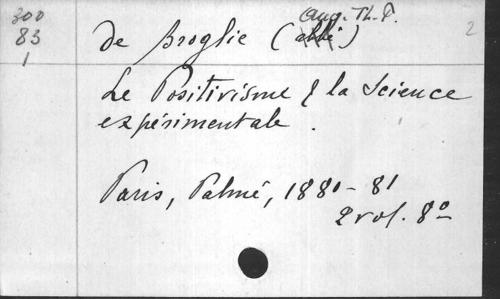 300
83
1
Aug. Th. P.
de Broglie (abbé)
2
Le Positivisme & la Science
expérimentale.
Paris, Palmé, 1880-81
2 vol. 8º